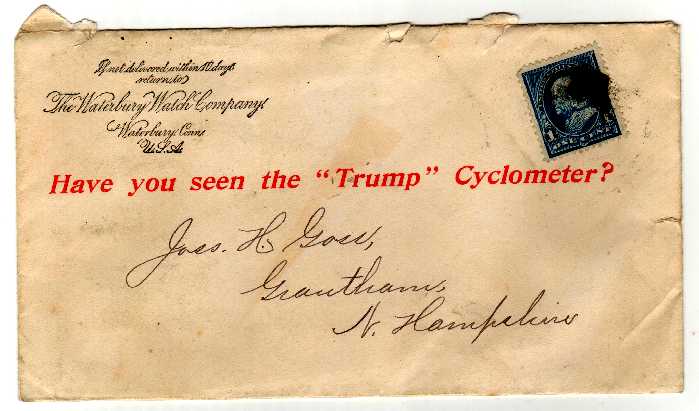 If not delivered within 10 days
return to
The Waterbury Watch Company,
Waterbury, Conn.
U.S.A.
1
ONE CENT
Have you seen the "Trump" Cyclometer?
H. Goss,
Grantham,
N. Hampshire